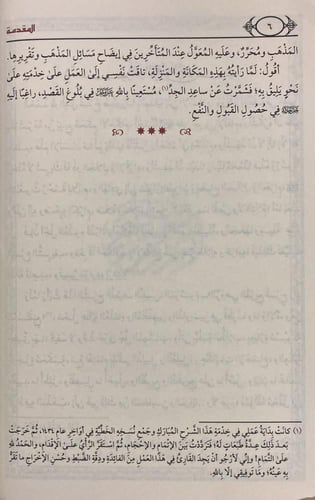 المقدمة
٦
المَذْهَبِ وَمُحَرَّرٌ، وَعَلَيْهِ المُعَوَّلُ عِنْدَ المُتَأَخِّرِينَ فِي إِيضَاحِ مَسَائِلِ المَذْهَبِ وَتَقْرِيرِهَا.
أَقُولُ: لَمَّا رَأَيْتُهُ بِهَذِهِ المَكَانَةِ وَالمَنْزِلَةِ، تَاقَتْ نَفْسِي إِلَىٰ العَمَلِ عَلَىٰ خِدْمَتِهِ عَلَىٰ
نَحْوٍ يَلِيقُ بِهِ؛ فَشَمَّرْتُ عَنْ سَاعِدِ الجِدِّ(١)، مُسْتَعِينًا بِاللهِ فِي بُلُوغِ القَصْدِ، رَاغِبًا إِلَيْهِ
فِي حُصُولِ القَبُولِ وَالنَّفْعِ.
(١) كَانَتْ بِدَايَةُ عَمَلِي فِي خِدْمَةِ هَذَا الشَّرْحِ المُبَارَكِ وَجَمْعِ نُسَخِهِ الخَطِّيَّةِ فِي أَوَاخِرِ عَامِ ١٤٣٤، ثُمَّ خَرَجَتْ
بَعْدَ ذَلِكَ عِدَّةُ طَبَعَاتٍ لَهُ؛ فَتَرَدَّدْتُ بَيْنَ الإِتْمَامِ وَالإِحْجَامِ، ثُمَّ اسْتَقَرَّ الرَّأْيُ عَلَىٰ الإِقْدَامِ، وَالحَمْدُ للهِ
عَلَىٰ التَّمَامِ! وَإِنِّي لَأَرْجُو أَنْ يَجِدَ القَارِئُ فِي هَذَا العَمَلِ مِنَ الفَائِدَةِ وَدِقَّةِ الضَّبْطِ وَحُسْنِ الإِخْرَاجِ مَا تَقَرُّ
بِهِ عَيْنُهُ؛ وَمَا تَوْفِيقِي إِلَّا بِاللهِ.